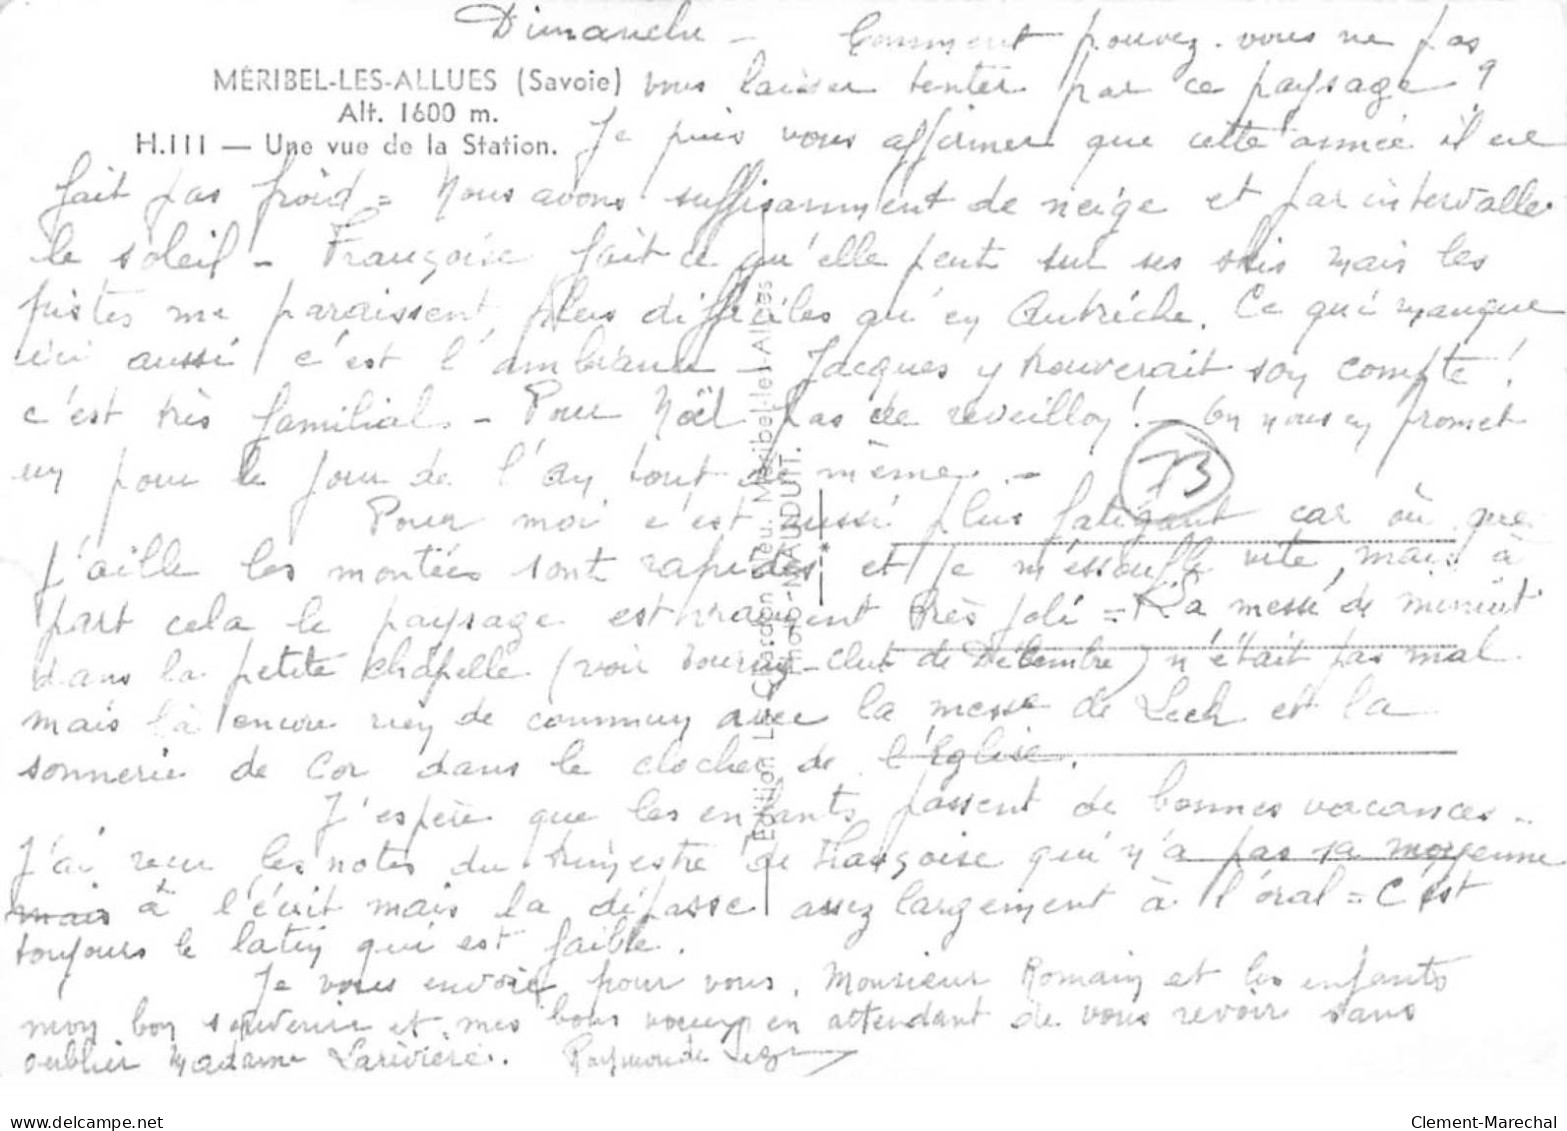 Dimanche - Comment pouvez-vous ne pas
MÉRIBEL-LES-ALLUES (Savoie)
vous laisser tenter par ce paysage ?
Alt. 1600 m.
H.111 — Une vue de la Station.
Je puis vous affirmer que cette année il ne
fait pas froid = Nous avons suffisamment de neige et par intervalle
le soleil - Françoise fait ce qu'elle peut sur ses skis mais les
pistes me paraissent plus difficiles qu'en Autriche. Ce qui manque
ici aussi c'est l'ambiance - Jacques y trouverait son compte !
c'est très familial - Pour Noël pas de reveillon ! - On nous en promet
un pour le jour de l'an tout de même. -
73
Pour moi c'est aussi plus fatigant car où que
j'aille les montées sont rapides et je m'éssouffle vite, mais à
part cela le paysage est vraiment très joli = La messe de minuit
dans la petite chapelle (voir Touring-Club de Décembre) n'était pas mal
mais là encore rien de commun avec la messe de Lech et la
sonnerie de Cor dans le clocher de l'Eglise.
J'espère que les enfants passent de bonnes vacances -
J'ai reçu les notes du trimestre de Françoise qui n'a pas sa moyenne
mais à l'écrit mais la dépasse assez largement à l'oral = C'est
toujours le latin qui est faible.
Je vous envoie, pour vous, Monsieur Romain et les enfants
mon bon souvenir et mes bons voeux en attendant de vous revoir sans
oublier Madame Larivière. Raymonde
Edition Le Chardon Bleu. Méribel-les-Allues
Photo-MAUDUIT.
delcampe.net
Clement-Marechal